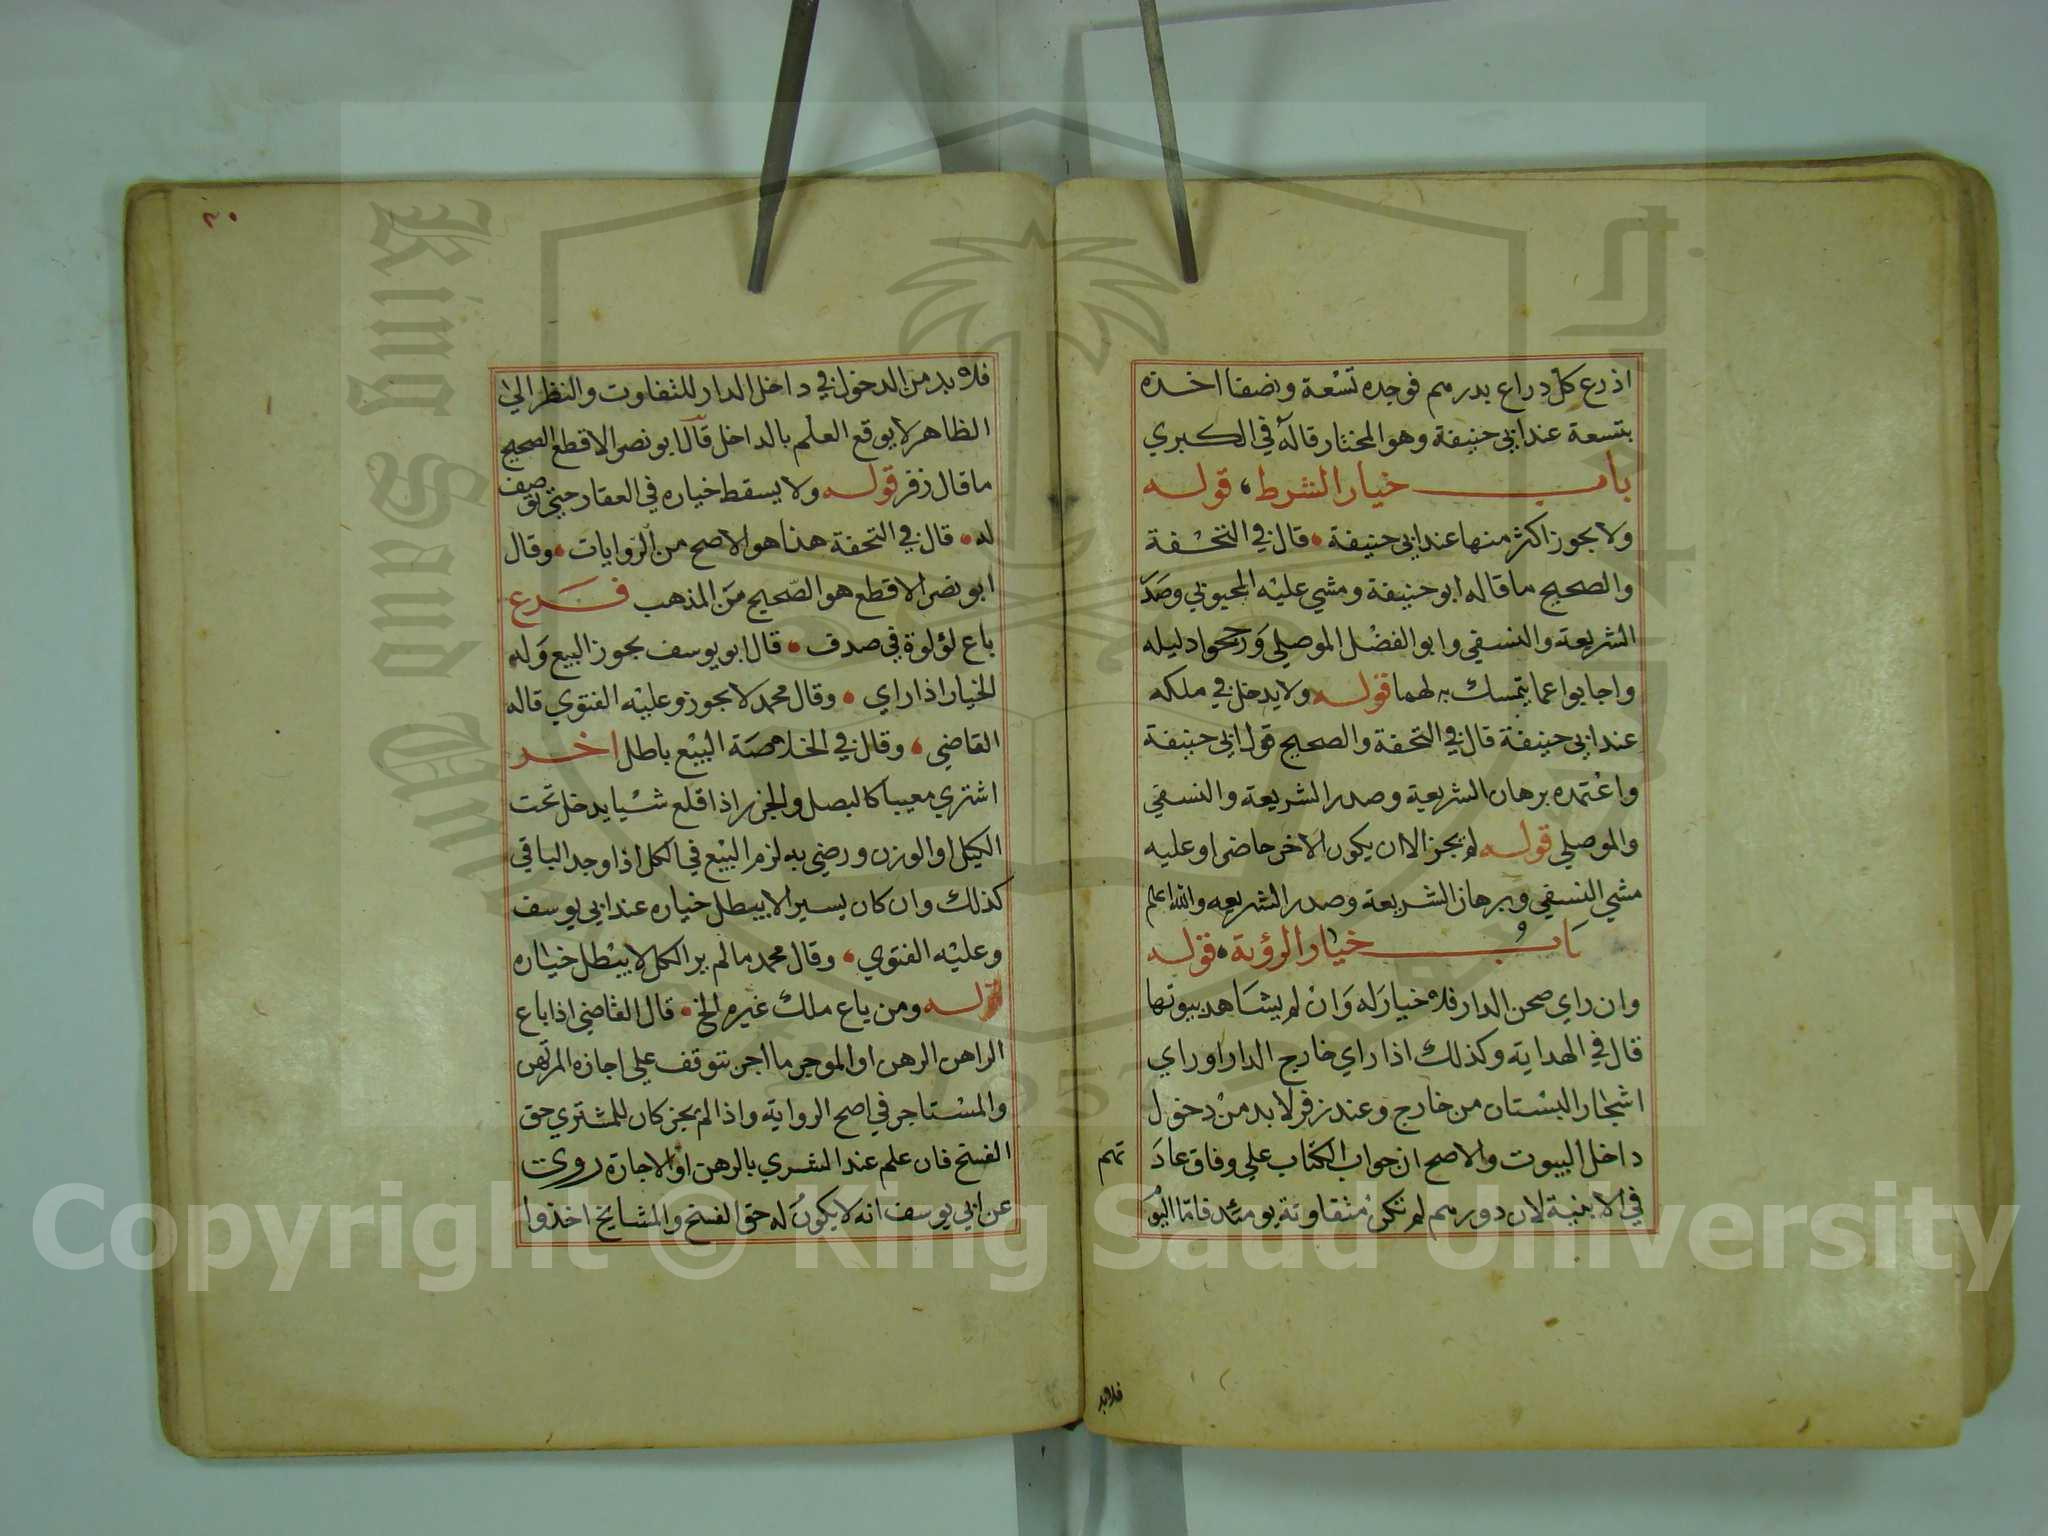 اذرع كل ذراع بدرهم فوجده تسعة ونصفا اخذه
بتسعة عند ابي حنيفة وهو المختار قاله في الكبري
باب خيار الشرط، قوله
ولا يجوز اكثر منها عند ابي حنيفة • قال في التحفة
والصحيح ما قاله ابو حنيفة ومشي عليه المحبوبي وصدر
الشريعة والنسفي وابو الفضل الموصلي ورجحوا دليله
واجابوا عما يتمسك به لهما قوله ولا يدخل في ملكه
عند ابي حنيفة قال في التحفة والصحيح قول ابي حنيفة
واعتمده برهان الشريعة وصدر الشريعة والنسفي
والموصلي قوله لم يجز الا ان يكون الاخر حاضرا وعليه
مشي النسفي وبرهان الشريعة وصدر الشريعه والله اعلم
باب خيار الرؤية • قوله
وان راي صحن الدار فلا خيار له وان لم يشاهد بيوتها
قال في الهداية وكذلك اذا راي خارج الدار او راي
اشجار البستان من خارج وعند زفر لا بد من دخول
داخل البيوت والاصح ان جواب الكتاب علي وفاق عاد
تهم
في الابنية لان دورهم لم تكن متفاوتة يومئذ فاما اليوم
فلا بد
٣٠
فلا بد من الدخول في داخل الدار للتفاوت والنظر الي
الظاهر لا يوقع العلم بالداخل قال ابو نصر الاقطع الصحيح
ما قال زفر قوله ولا يسقط خياره في العقار حتي توصف
له • قال في التحفة هذا هو الاصح من الروايات • وقال
ابو نصر الاقطع هو الصحيح من المذهب فرع
باع لؤلوة في صدف • قال ابو يوسف يجوز البيع وله
الخيار اذا راي • وقال محمد لا يجوز وعليه الفتوي قاله
القاضي • وقال في الخلاصة البيع باطل اخر
اشتري معيبا كالبصل والجزر اذا قلع شيا يدخل تحت
الكيل او الوزن ورضي به لزم البيع في الكل اذا وجد الباقي
كذلك وان كان يسيرا لا يبطل خياره عند ابي يوسف
وعليه الفتوي • وقال محمد ما لم ير الكل لا يبطل خياره
قوله ومن باع ملك غيره الخ • قال القاضي اذا باع
الراهن الرهن او الموجر ما اجر تتوقف علي اجازة المرتهن
والمستاجر في اصح الرواية واذا لم يجز كان للمشتري حق
الفسخ فان علم عند الشري بالرهن او الاجارة روي
عن ابي يوسف انه لا يكون له حق الفسخ والمشايخ اخذوا
Copyright © King Saud University
King Saud University
1957